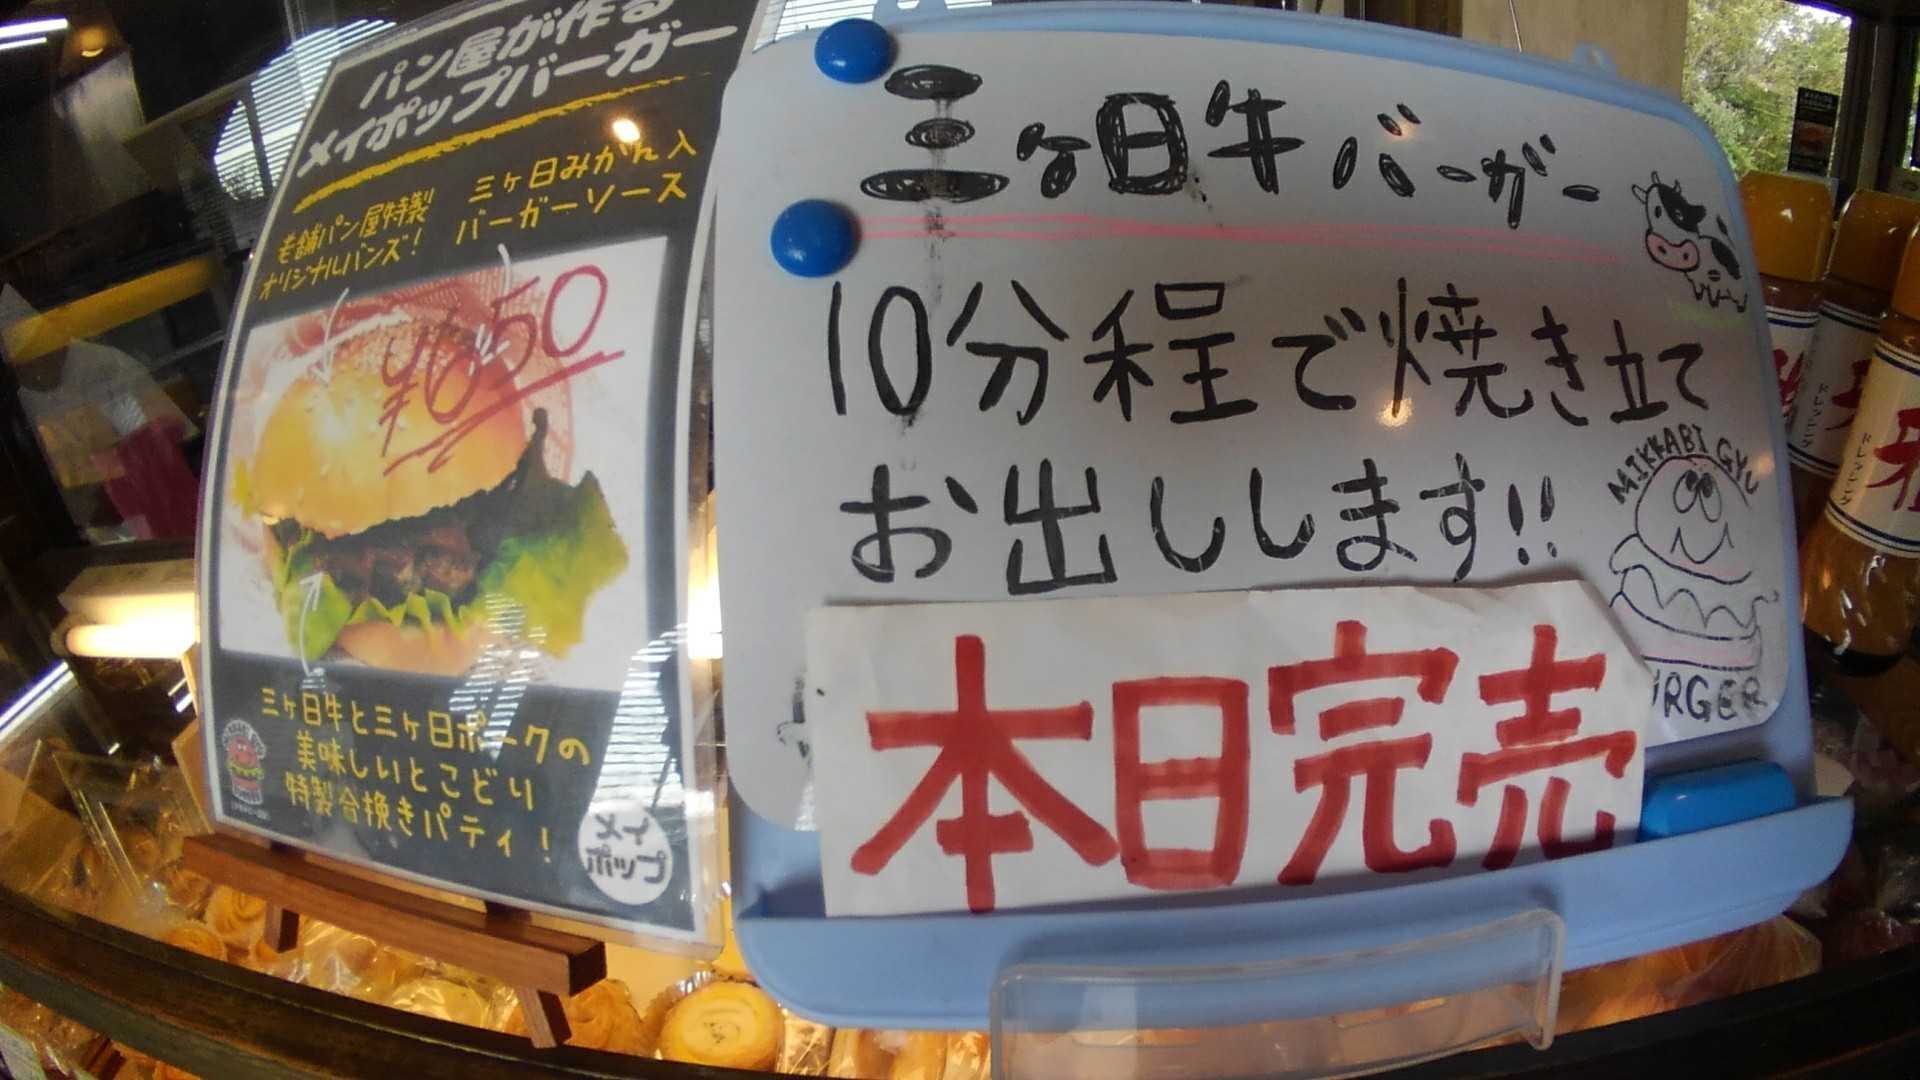 パン屋が作る
メイポップバーガー
老舗パン屋特製
オリジナルバンズ！
三ヶ日みかん入
バーガーソース
¥650
三ヶ日牛と三ヶ日ポークの
美味しいとこどり
特製合挽きパティ！
メイ
ポップ
三ヶ日牛バーガー
10分程で焼き立て
お出しします!!
MIKKABI GYU
本日完売
ドレッシング